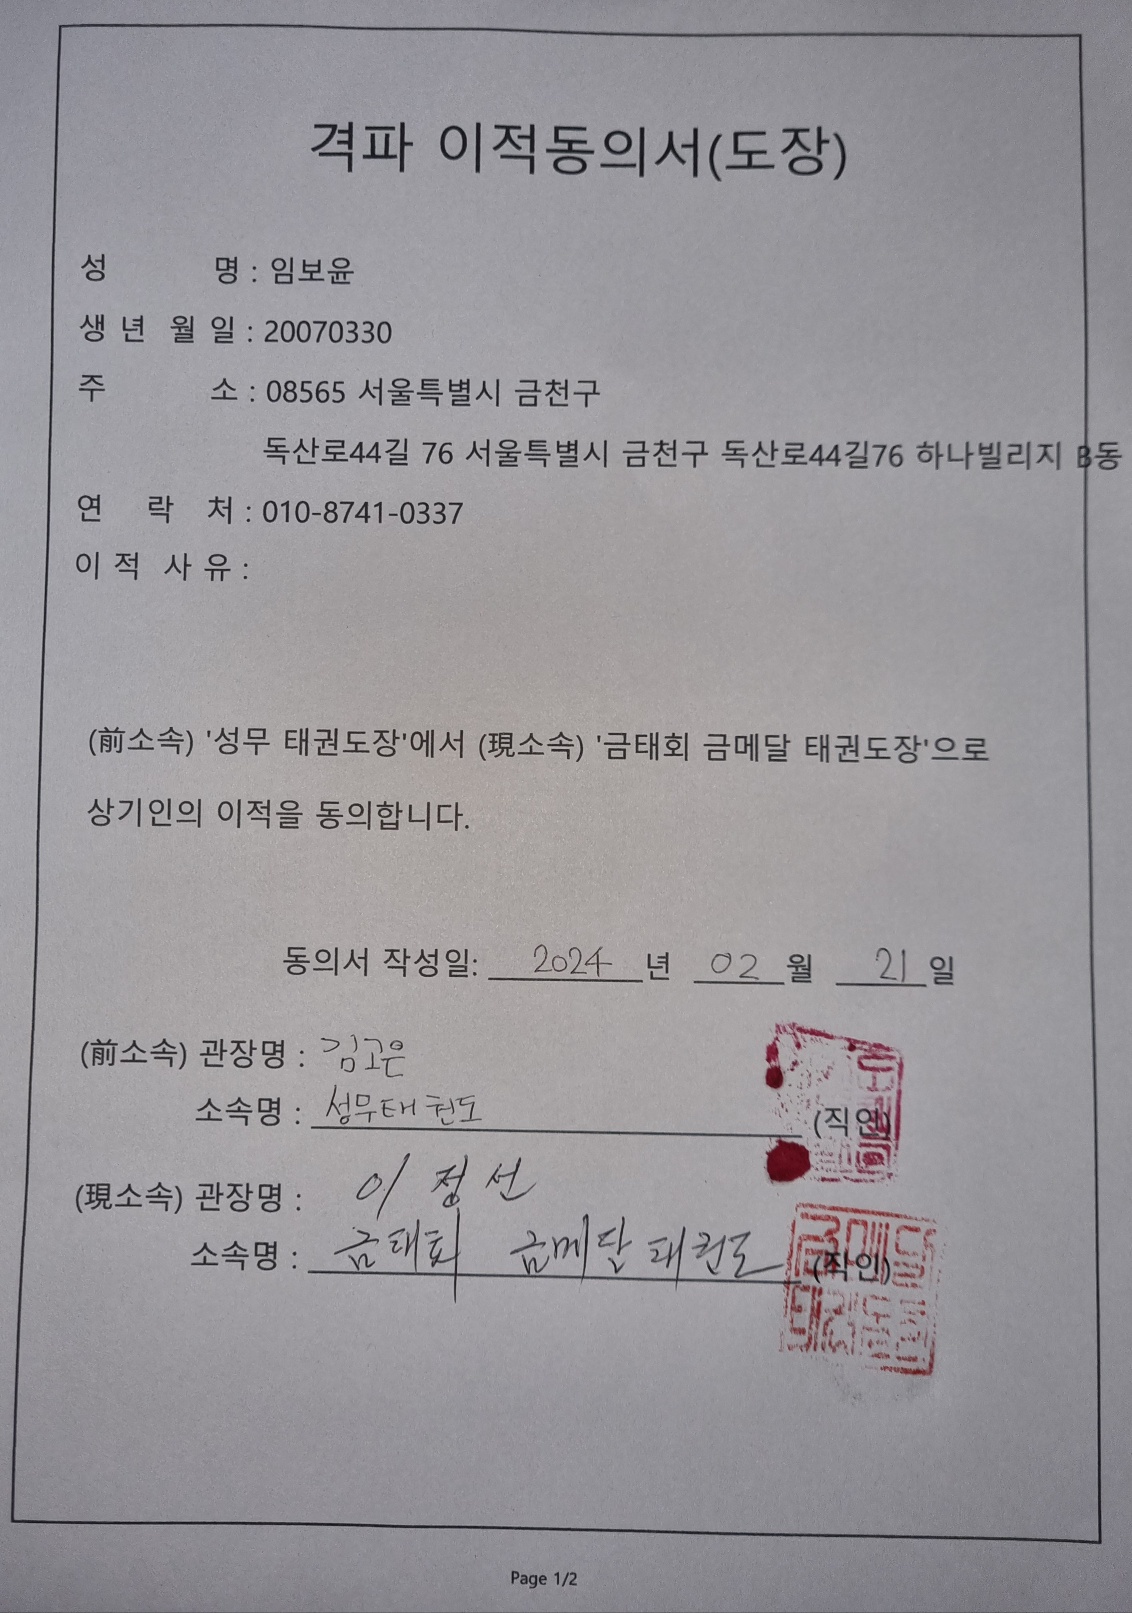 격파 이적동의서(도장)
성 명 : 임보윤
생 년 월 일 : 20070330
주 소 : 08565 서울특별시 금천구
독산로44길 76 서울특별시 금천구 독산로44길76 하나빌리지 B동
연 락 처 : 010-8741-0337
이 적 사 유 :
(前소속) '성무 태권도장'에서 (現소속) '금태회 금메달 태권도장'으로
상기인의 이적을 동의합니다.
동의서 작성일: 2024 년 02 월 21 일
(前소속) 관장명 : 김고은
소속명 : 성무태권도 (직인)
(現소속) 관장명 : 이정선
소속명 : 금태회 금메달태권도 (직인)
금메달
태권도
Page 1/2